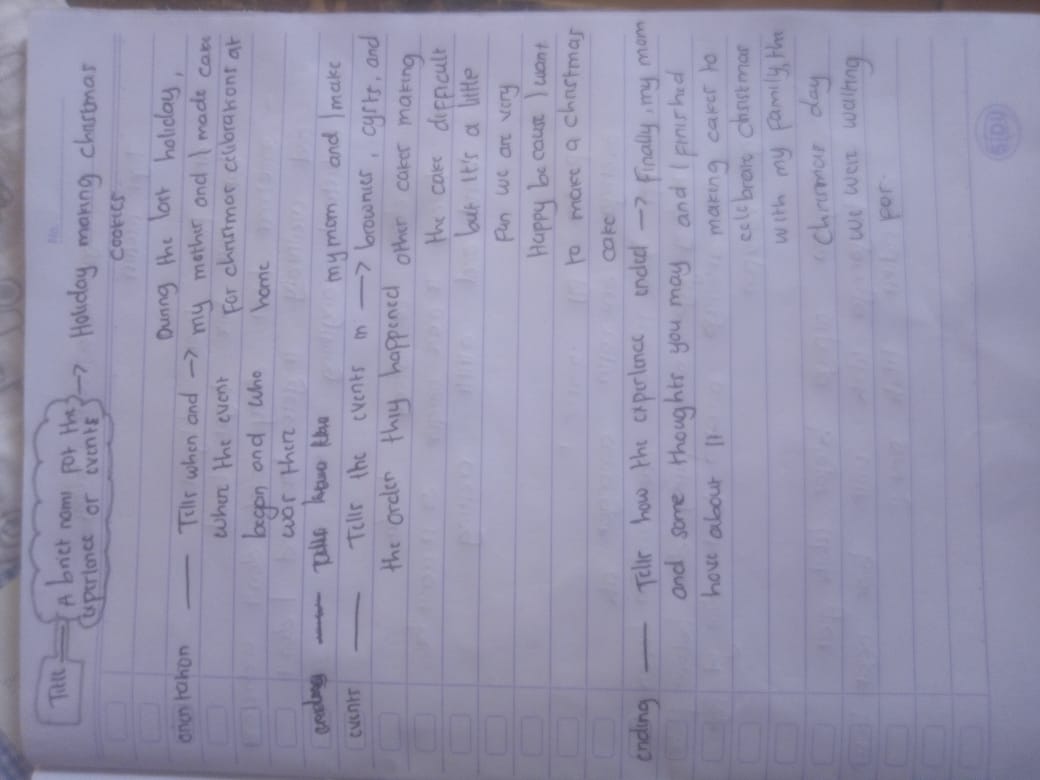 No.
Title A brief name for the → Holiday making christmas
experience or events cookies
During the last holiday,
orientation — Tells when and → my mother and I made cake
where the event For christmas celibrations at
began and who home
was there
ending — Tells how
my mom and I make
events — Tells the events in → brownies, cysts, and
the order they happened other cakes making
the cake difficult
but It's a little
Fun we are very
Happy because I want
to make a christmas
cake
ending — Tells how the experience ended → Finally, my mom
and some thoughts you may and I finished
have about It making cakes to
celebrate christmas
with my family, the
Christmas day
we were waiting
for.
SIDU